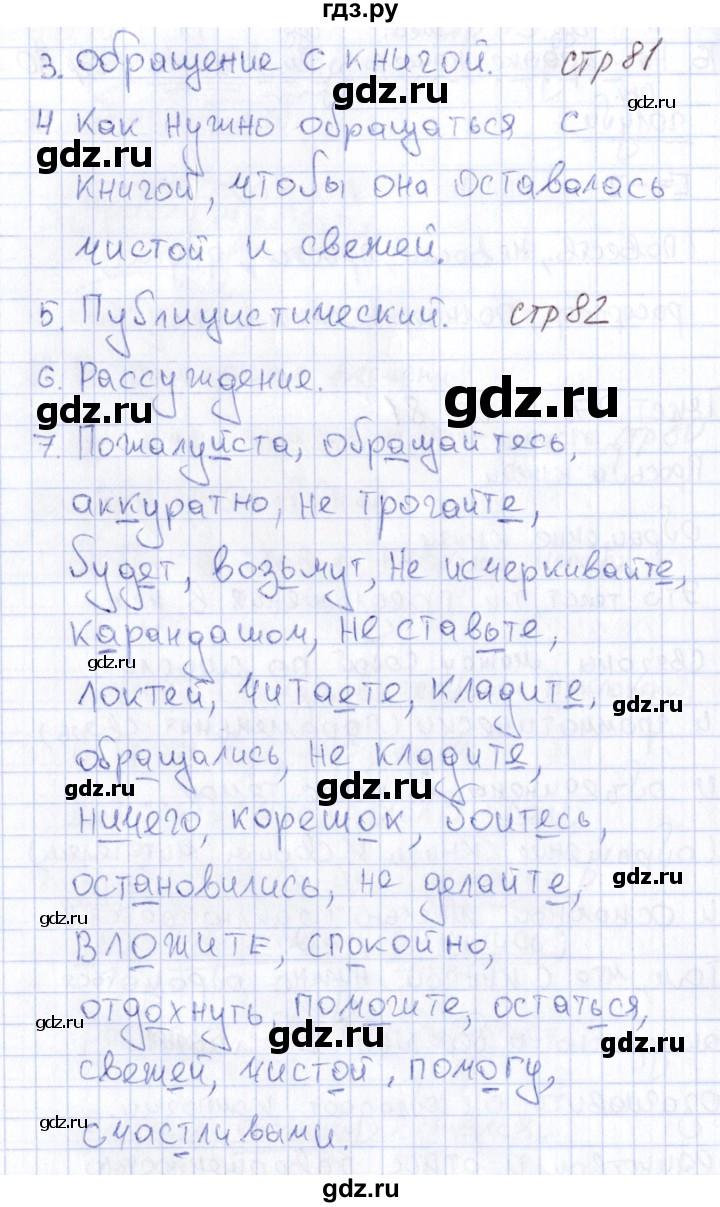 гдз.ру
3. Обращение с книгой. стр 81
gdz.ru
gdz.ru
4 Как нужно обращаться с
gdz.ru
книгой, чтобы она оставалась
чистой и свежей.
5. Публицистический. стр 82
6. Рассуждение.
gdz.ru
gdz.ru
7. Пожалуйста, обращайтесь,
аккуратно, не трогайте,
будет, возьмут, не исчеркивайте,
карандашом, не ставьте,
gdz.ru
локтей, читаете, кладите,
gdz.ru
обращались, не кладите,
gdz.ru
gdz.ru
ничего, корешок, боитесь,
остановились, не делайте,
gdz.ru
gdz.ru
вложите, спокойно,
отдохнуть, помогите, остаться,
gdz.ru
gdz.ru
gdz.ru
свежей, чистой, помогу,
счастливыми.
gdz.ru